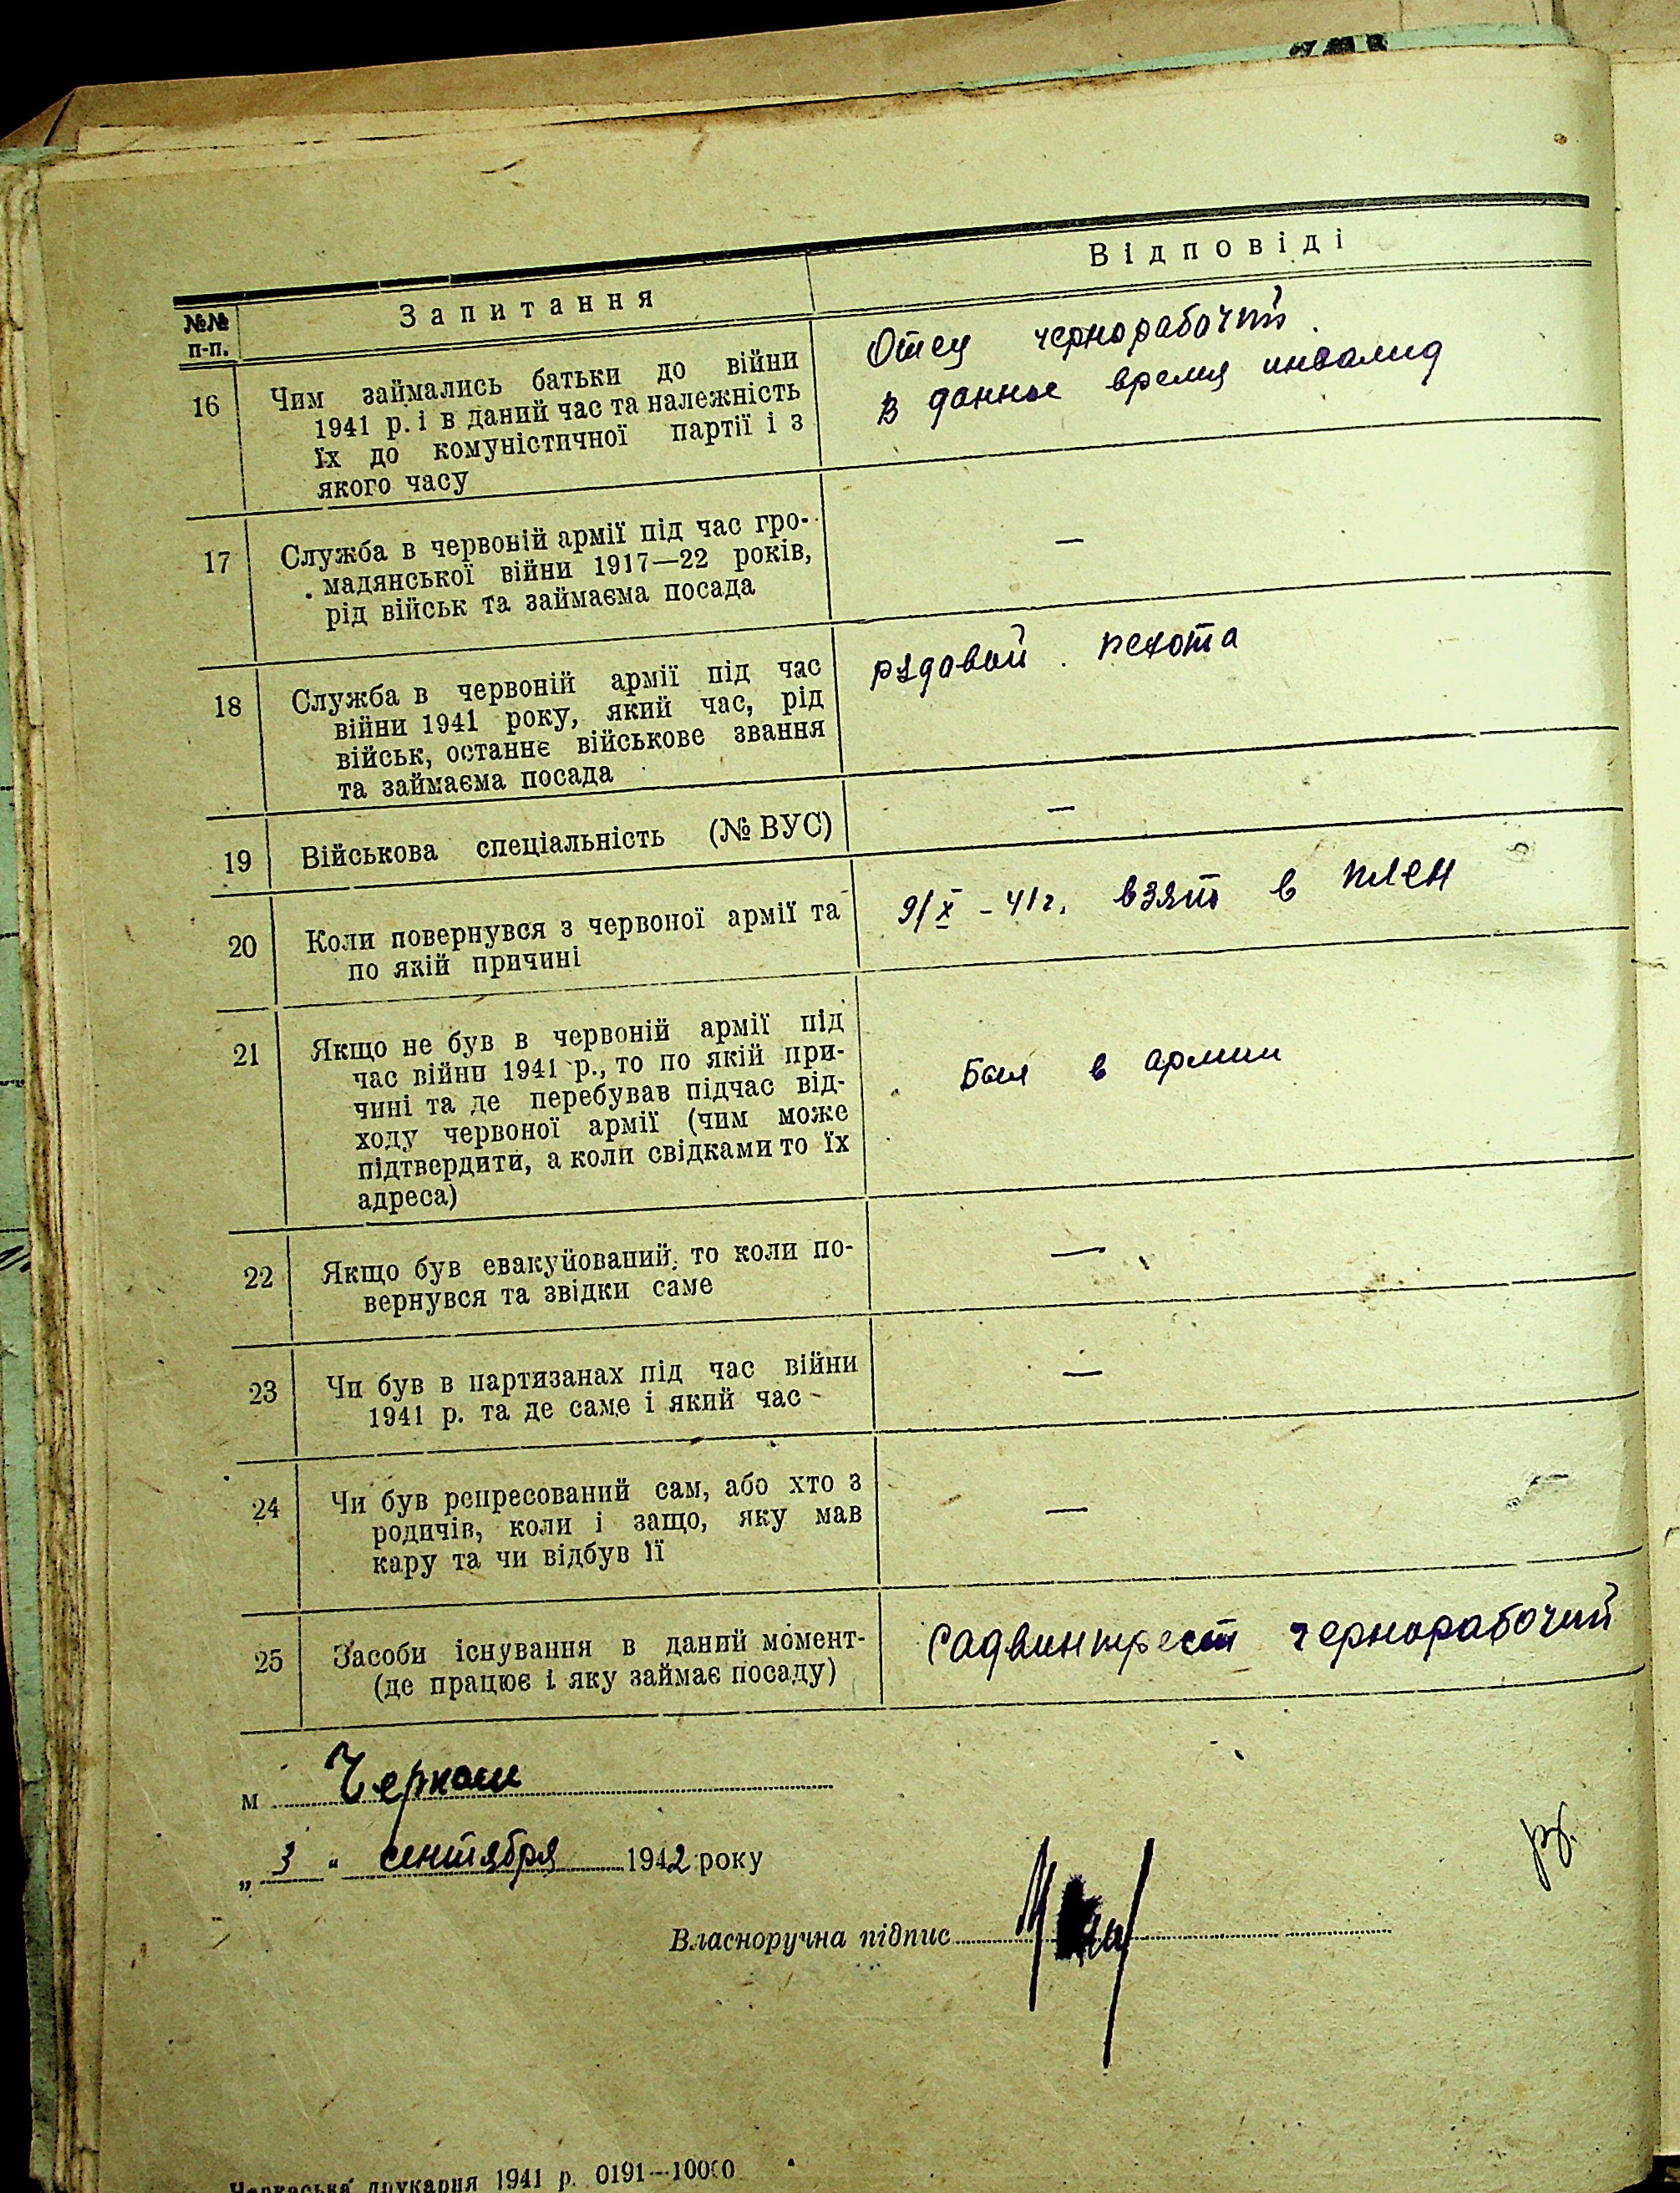 №№ п-п.
Запитання
Відповіді
16
Чим займались батьки до війни
1941 р. і в даний час та належність
їх до комуністичної партії і з
якого часу
Отец чернорабочий.
В данное время инвалид
17
Служба в червоній армії під час гро-
мадянської війни 1917—22 років,
рід військ та займаєма посада
—
18
Служба в червоній армії під час
війни 1941 року, який час, рід
військ, останнє військове звання
та займаєма посада
рядовой. пехота
19
Військова спеціальність (№ ВУС)
—
20
Коли повернувся з червоної армії та
по якій причині
9/X - 41 г. взят в плен
21
Якщо не був в червоній армії під
час війни 1941 р., то по якій при-
чині та де перебував підчас від-
ходу червоної армії (чим може
підтвердити, а коли свідками то їх
адреса)
Был в армии
22
Якщо був евакуйований, то коли по-
вернувся та звідки саме
—
23
Чи був в партизанах під час війни
1941 р. та де саме і який час
—
24
Чи був репресований сам, або хто з
родичів, коли і защо, яку мав
кару та чи відбув її
—
25
Засоби існування в даний момент-
(де працює і яку займає посаду)
Садвинтрест чернорабочий
м Черкассы
„ 3 " сентября 1942 року
Власноручна підпис
Черкаська друкарня 1941 р. 0191—10000